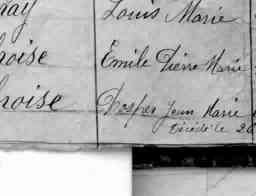 nay Louis Marie
hoise Emile Pierre Marie
hoise Prosper Jean Marie
Décédé le 20